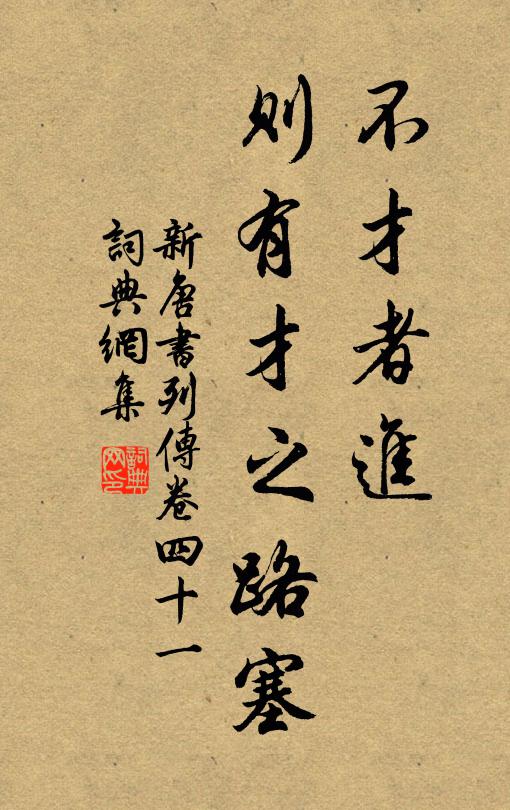 不才者進
則有才之路塞
新唐書列傳卷四十一
詞典網集
詞典网印